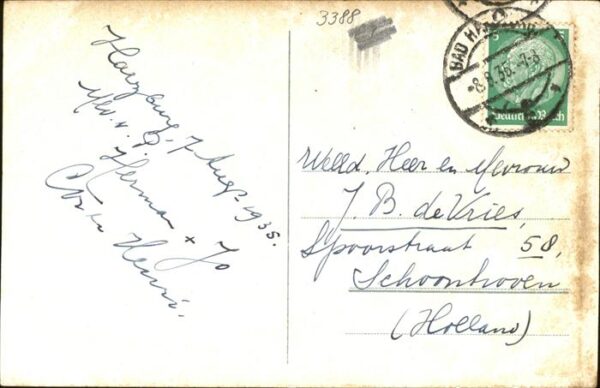 3388
Harzburg, 7 Aug. 1935.
Herman + Jo
BAD HARZBURG
-8.8.35.-7-8
5
Deutsches Reich
Weled. Heer en Mevrouw
J. B. de Vries,
Spoorstraat 58,
Schoonhoven
(Holland)